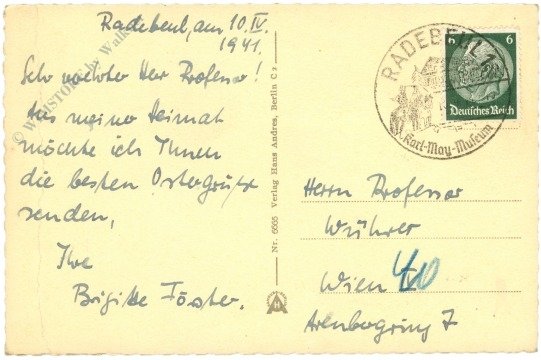 Radebeul, am 10. IV.
1941.
Sehr verehrter Herr Professor!
Aus meiner Heimat
möchte ich Ihnen
die besten Ostergrüße
senden,
Ihre
Brigitte Förster.
Nr. 6555 Verlag Hans Andres, Berlin C2
RADEBEUL 1
Karl-May-Museum
6
6
Deutsches Reich
Herrn Professor
Wührer
Wien 40
Arenbergring 7
© WWIISTORE by Walk